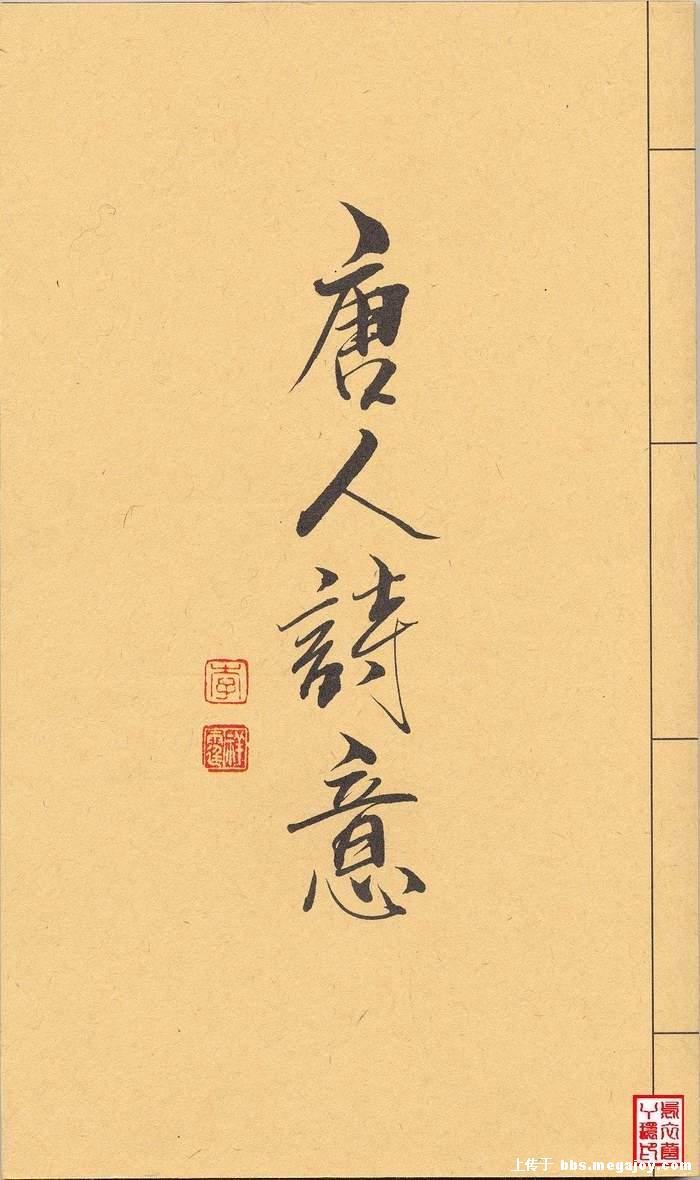 唐人詩意
李
上传于 bbs.megajoy.com